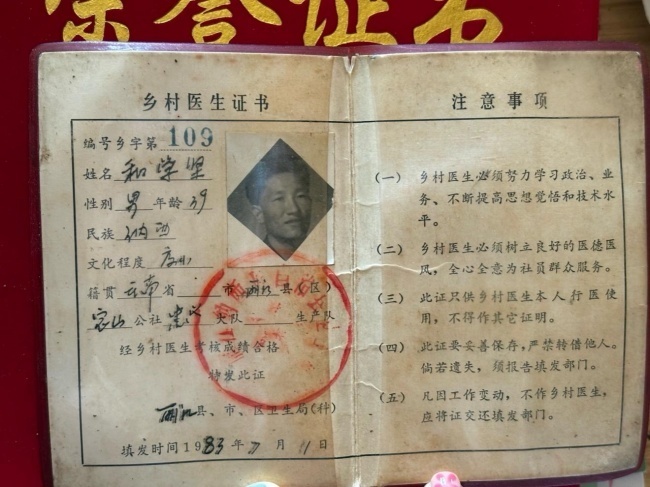 荣誉证书
乡村医生证书
编号乡字第 109
姓名 和学坚
性别 男 年龄 39
民族 纳西
文化程度 高小
籍贯 云南 省 市 丽江 县(区)
公社 忠义 大队 生产队
经乡村医生考核成绩合格
特发此证
丽江 县、市、区卫生局(科)
填发时间 1983 年 7 月 11 日
注意事项
(一) 乡村医生必须努力学习政治、业
务、不断提高思想觉悟和技术水
平。
(二) 乡村医生必须树立良好的医德医
风,全心全意为社员群众服务。
(三) 此证只供乡村医生本人行医使
用,不得作其它证明。
(四) 此证要妥善保存,严禁转借他人。
倘若遗失,须报告填发部门。
(五) 凡因工作变动,不作乡村医生,
应将证交还填发部门。